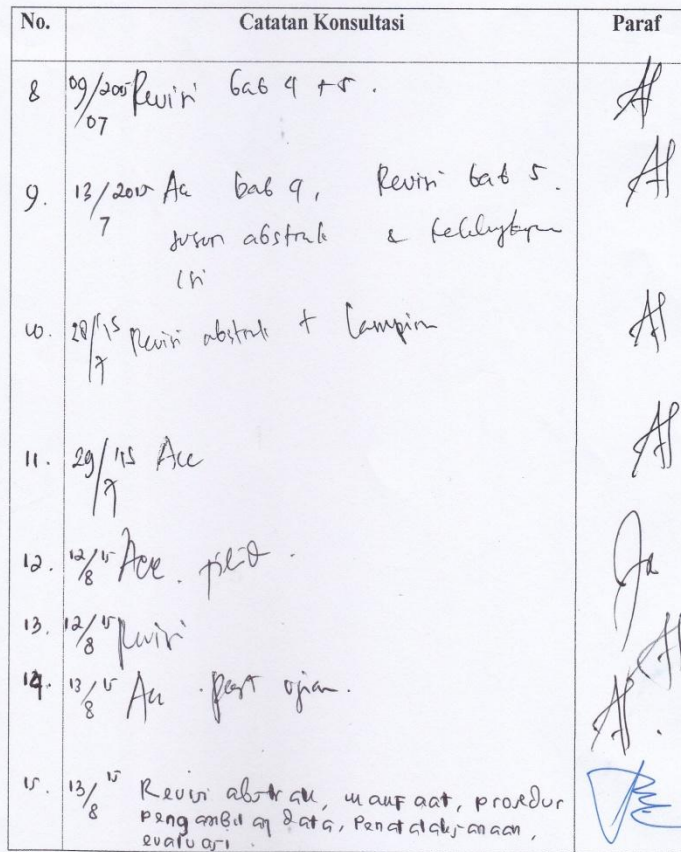 No. Catatan Konsultasi Paraf
8 09/2015 Revisi bab 4 + 5.
07
9. 13/2015 Acc bab 4, Revisi bab 5.
7
susun abstrak & kelengkapan
isi
10. 28/'15 Revisi abstrak + Lampiran
7
11. 29/'15 Acc
7
12. 12/15 Acc
8
13. 12/15 Revisi
8
14. 13/15 Acc post ujian.
8
15. 13/15 Revisi abstrak, manfaat, prosedur
8
pengambilan data, Penatalaksanaan,
evaluasi.